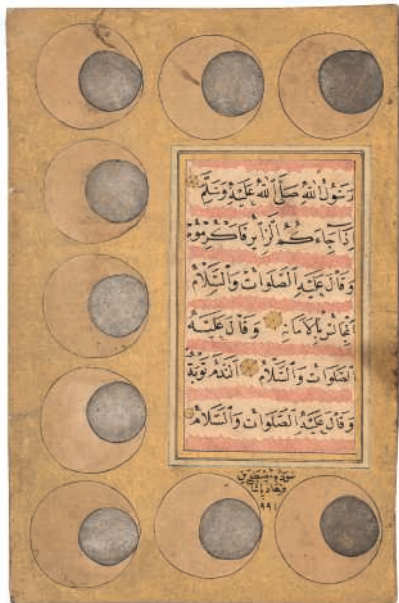 رَسُولُ اللهِ صَلَّى اللهُ عَلَيْهِ وَسَلَّمَ
إِذَا جَاءَكُمُ الزَّائِرُ فَاكْرِمُوهُ
وَقَالَ عَلَيْهِ الصَّلَوَاتُ وَالسَّلَامُ
المَجَالِسُ بِالأَمَانَةِ وَقَالَ عَلَيْهِ
الصَّلَوَاتُ وَالسَّلَامُ النَّدَمُ تَوْبَةٌ
وَقَالَ عَلَيْهِ الصَّلَوَاتُ وَالسَّلَامُ
فرهاد پاشا
٩٩١